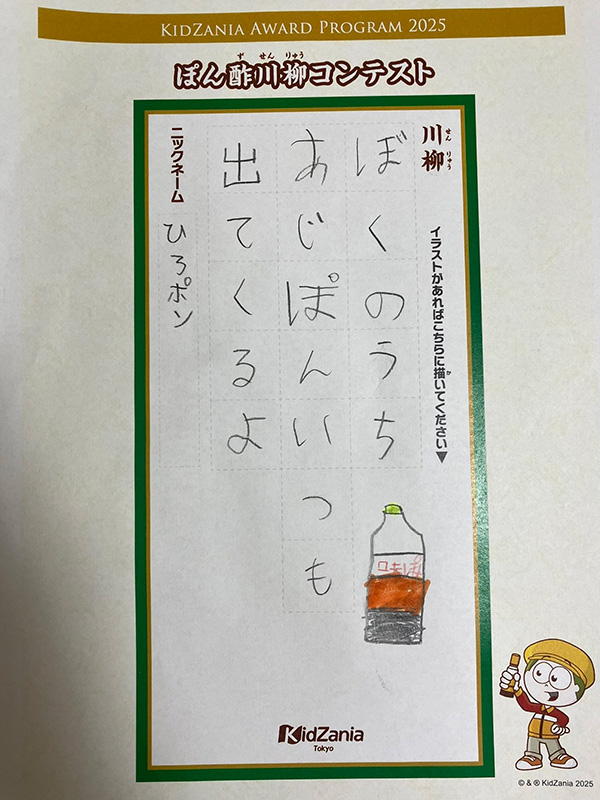 KIDZANIA AWARD PROGRAM 2025
ぽん酢川柳コンテスト
ず せん りゅう
川柳
せん りゅう
イラストがあればこちらに描いてください▼
か
ぼくのうち
あじぽんいつも
出てくるよ
ニックネーム
ひろポン
味ぽ
KidZania
Tokyo
© & ® KidZania 2025